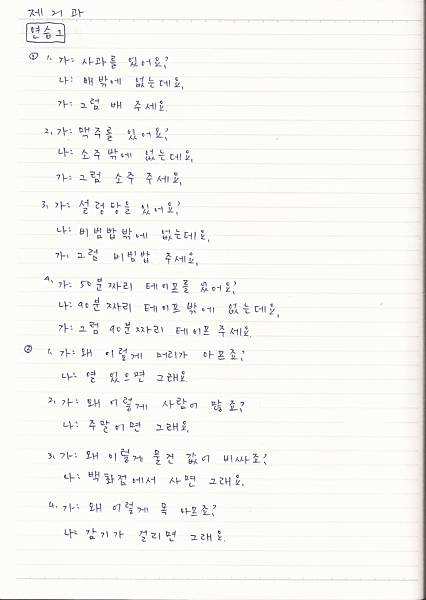 제 21 과
연습 1
① 1. 가: 사과를 있어요?
나: 배 밖에 없는데요.
가: 그럼 배 주세요.
2. 가: 맥주를 있어요?
나: 소주 밖에 없는데요.
가: 그럼 소주 주세요.
3. 가: 설렁탕을 있어요?
나: 비빔밥 밖에 없는데요.
가: 그럼 비빔밥 주세요.
4. 가: 50분 짜리 테이프를 있어요?
나: 90분 짜리 테이프 밖에 없는데요.
가: 그럼 90분 짜리 테이프 주세요.
② 1. 가: 왜 이렇게 머리가 아프죠?
나: 열 있으면 그래요.
2. 가: 왜 이렇게 사람이 많죠?
나: 주말이면 그래요.
3. 가: 왜 이렇게 물건 값이 비싸죠?
나: 백화점에서 사면 그래요.
4. 가: 왜 이렇게 목 아프죠?
나: 감기가 걸리면 그래요.